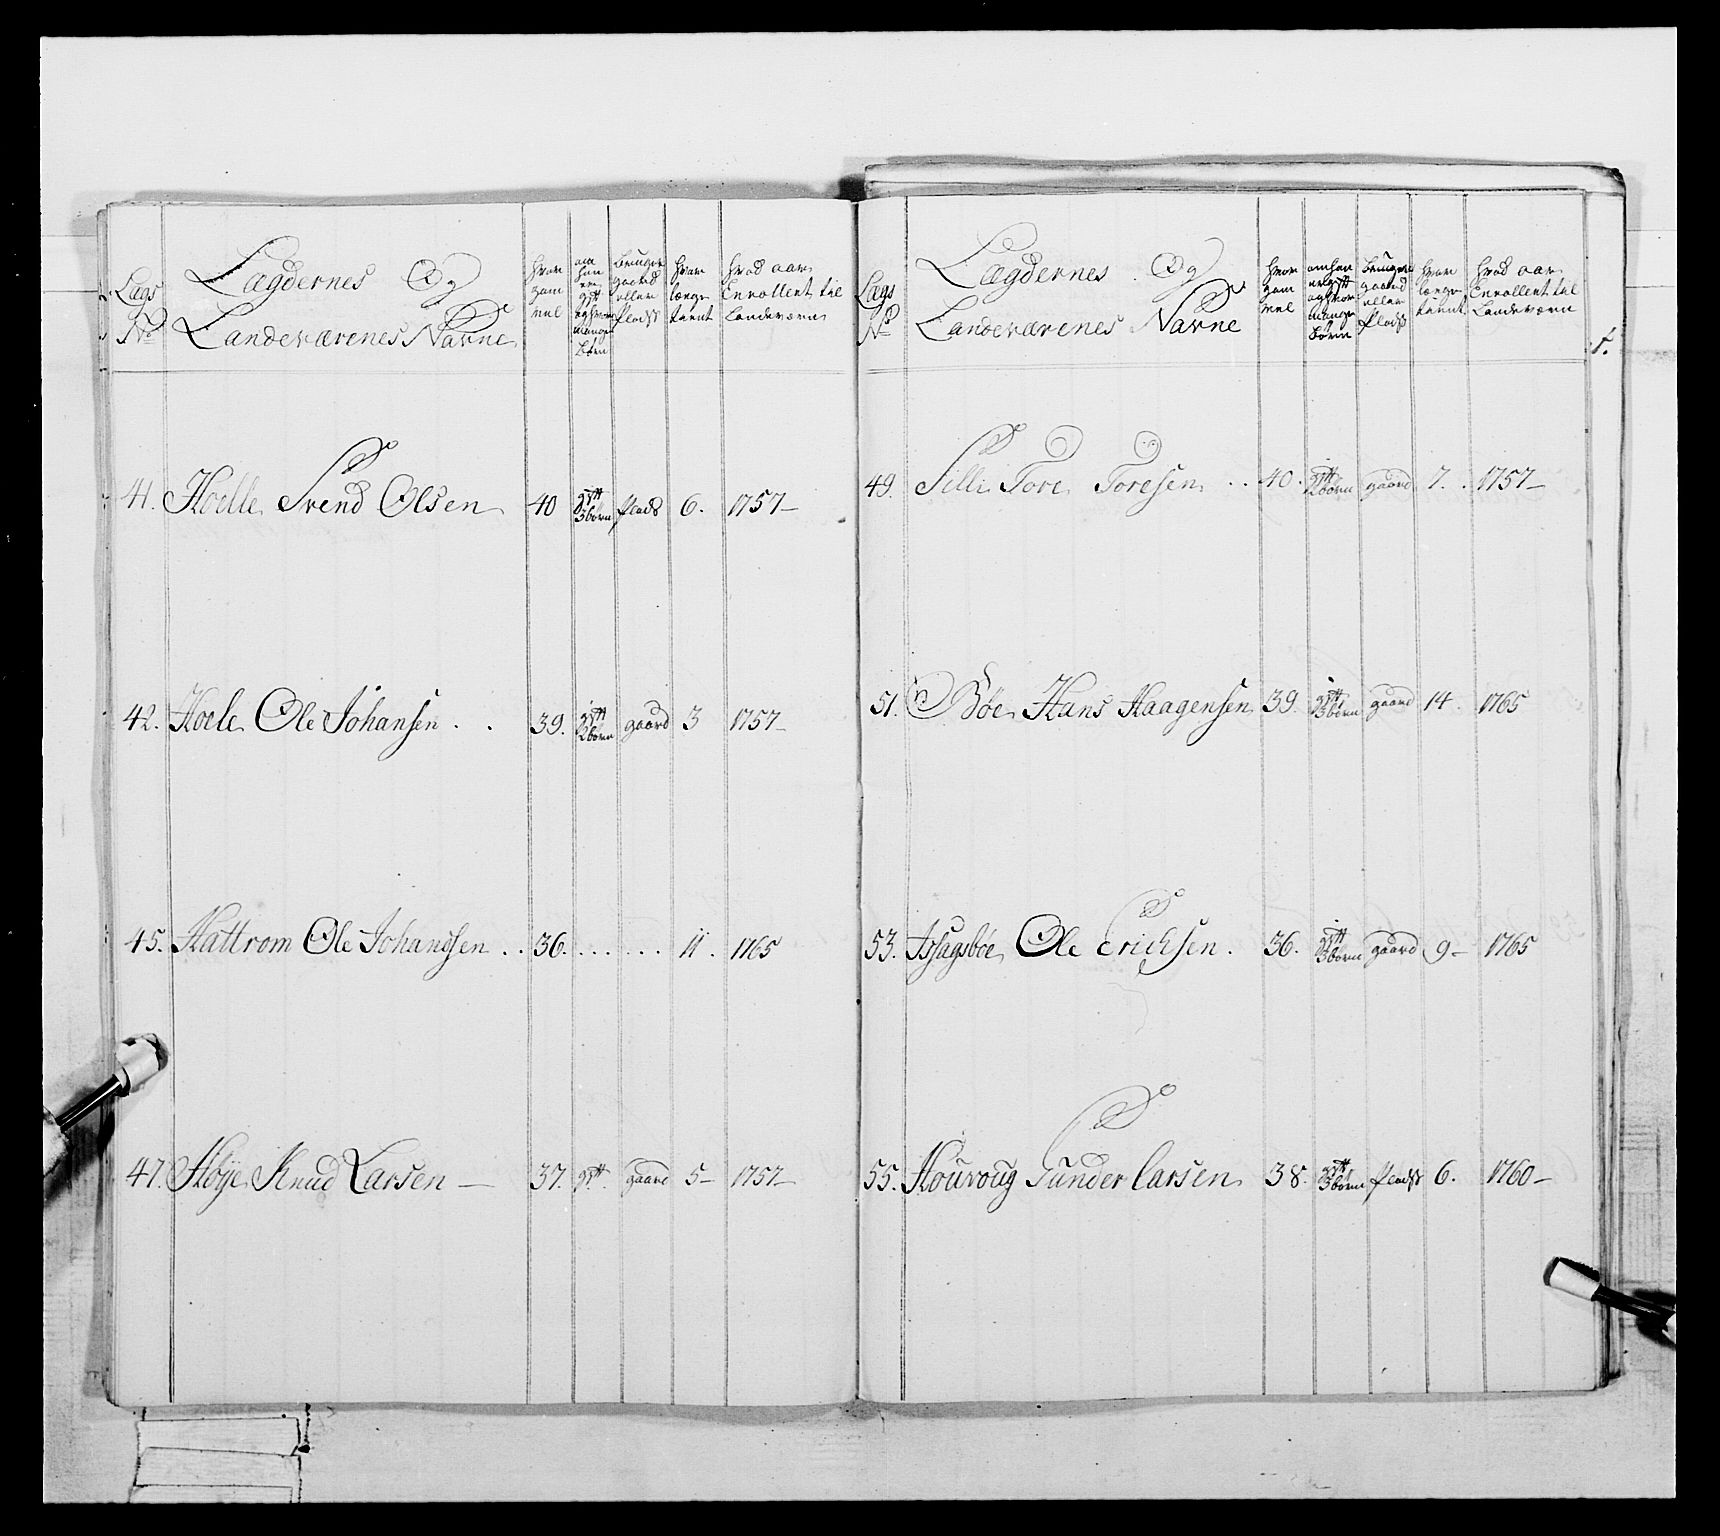 Lægs
No
Lægdernes Og
Landeværenes Navne
hvor
gam
mel
om
han
er
gift
og hvor
mange
børn
bruger
gaard
eller
Plads
hvor
længe
tient
hvad aar
Enrollert til
Landeværn
41. Hoelle Svend Olsen 40 gift 3 børn Plads 6. 1757
42. Hoele Ole Johansen . . 39. gift 2 børn gaard 3 1757
45. Hattrom Ole Johanssen . . 36. . . . . . . 11. 1765
47. Høÿe Knud Larsen — 37. gift gaard 5 1757
Lægs
No
Lægdernes Og
Landeværenes Navne
hvor
gam
mel
om han
er gift
og hvor
mange
børn
bruger
gaard
eller
Plads
hvor
længe
tient
hvad aar
Enrollert til
Landeværn
49. Silli Tore Toresen . . 40. gift 2 børn gaard 7. . 1757
51. Bøe Hans Haagensen 39. gift 3 børn gaard 14. 1765
53. Ole Erichsen . 36. gift 3 børn gaard 9 1765
55. Gunder Larsen 38. gift 3 børn Plads 6. 1760